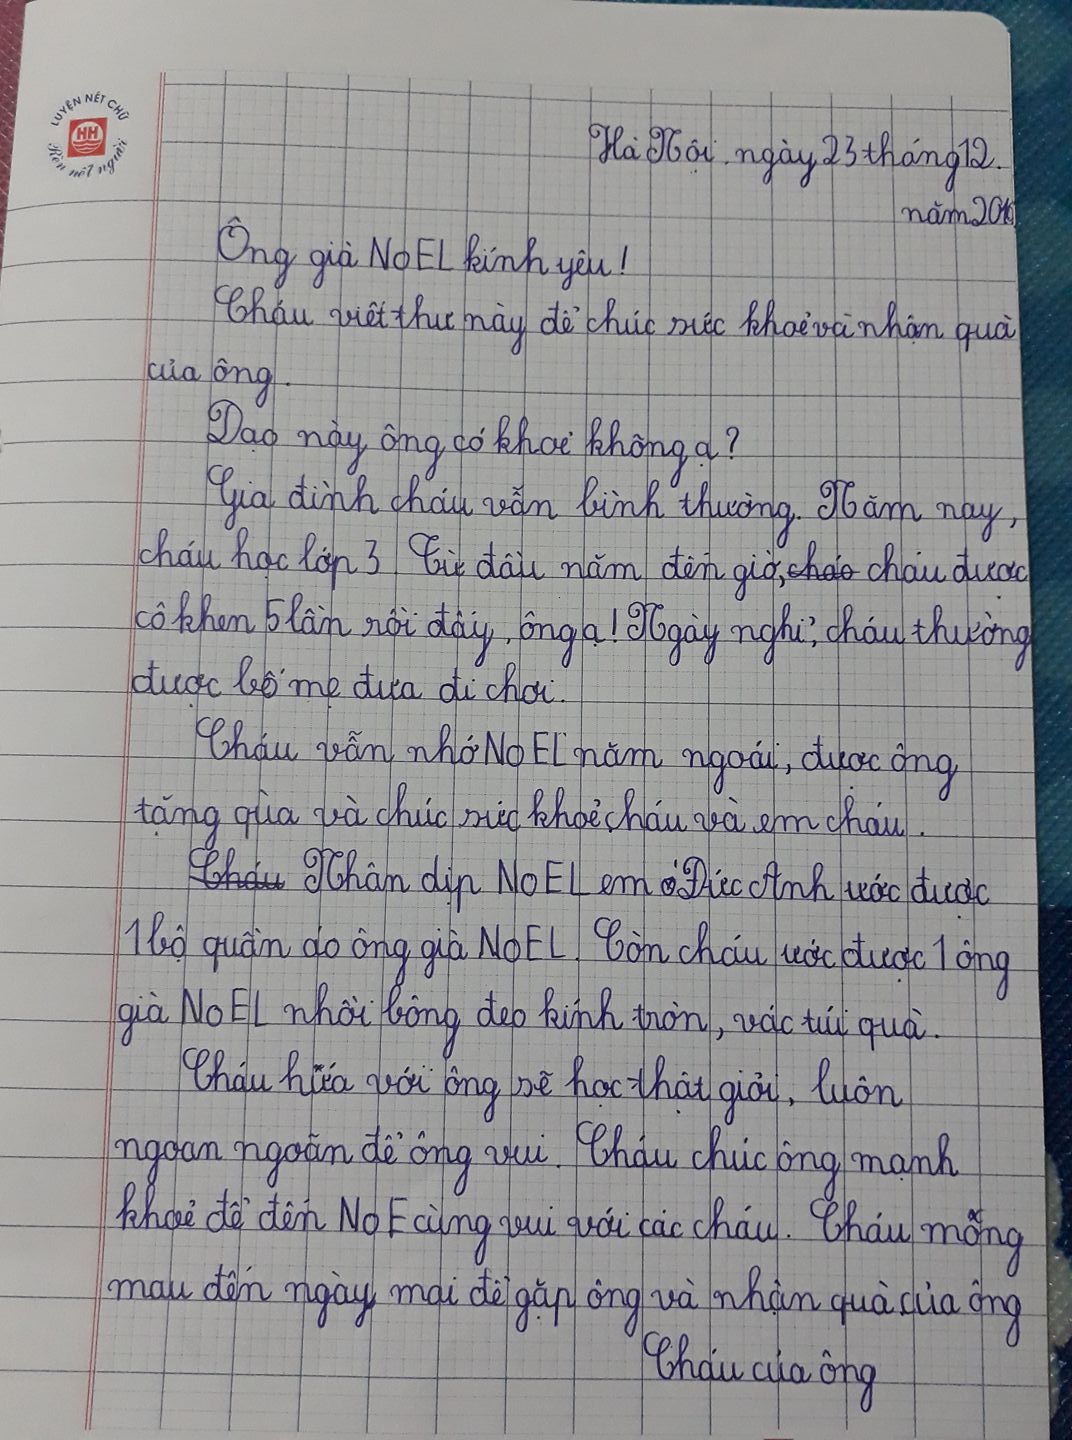 LUYỆN NÉT CHỮ
HH
Rèn nết người
Hà Nội, ngày 23 tháng 12.
năm 2016
Ông già NOEL kính yêu!
Cháu viết thư này để chúc sức khoẻ và nhận quà
của ông.
Dạo này ông có khoẻ không ạ?
Gia đình cháu vẫn bình thường. Năm nay,
cháu học lớp 3. Từ đầu năm đến giờ, cháo cháu được
cô khen 5 lần rồi đấy, ông ạ! Ngày nghỉ, cháu thường
được bố mẹ đưa đi chơi.
Cháu vẫn nhớ NOEL năm ngoái, được ông
tặng qùa và chúc sức khoẻ cháu và em cháu.
Cháu Nhân dịp NOEL em Đức Anh ước được
1 bộ quần áo ông già NOEL. Còn cháu ước được 1 ông
già NOEL nhồi bông đeo kính tròn, vác túi quà.
Cháu hứa với ông sẽ học thật giỏi, luôn
ngoan ngoãn để ông vui. Cháu chúc ông mạnh
khoẻ để đến NOE cùng vui với các cháu. Cháu mong
mau đến ngày mai để gặp ông và nhận quà của ông
Cháu của ông